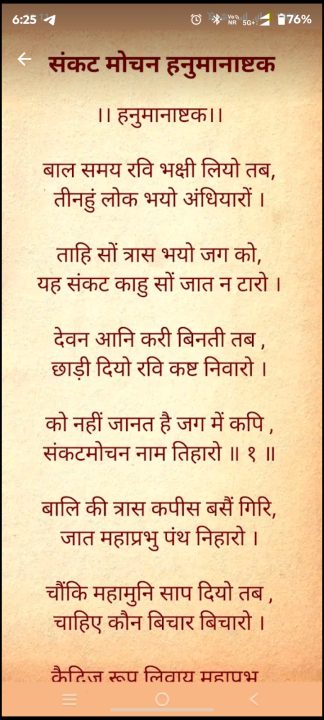 6:25
Vo))
NR
5G+
76%
संकट मोचन हनुमानाष्टक
।। हनुमानाष्टक।।
बाल समय रवि भक्षी लियो तब,
तीनहुं लोक भयो अंधियारों ।
ताहि सों त्रास भयो जग को,
यह संकट काहु सों जात न टारो ।
देवन आनि करी बिनती तब ,
छाड़ी दियो रवि कष्ट निवारो ।
को नहीं जानत है जग में कपि ,
संकटमोचन नाम तिहारो ॥ १ ॥
बालि की त्रास कपीस बसैं गिरि,
जात महाप्रभु पंथ निहारो ।
चौंकि महामुनि साप दियो तब ,
चाहिए कौन बिचार बिचारो ।
कैद्विज रूप लिवाय महाप्रभु